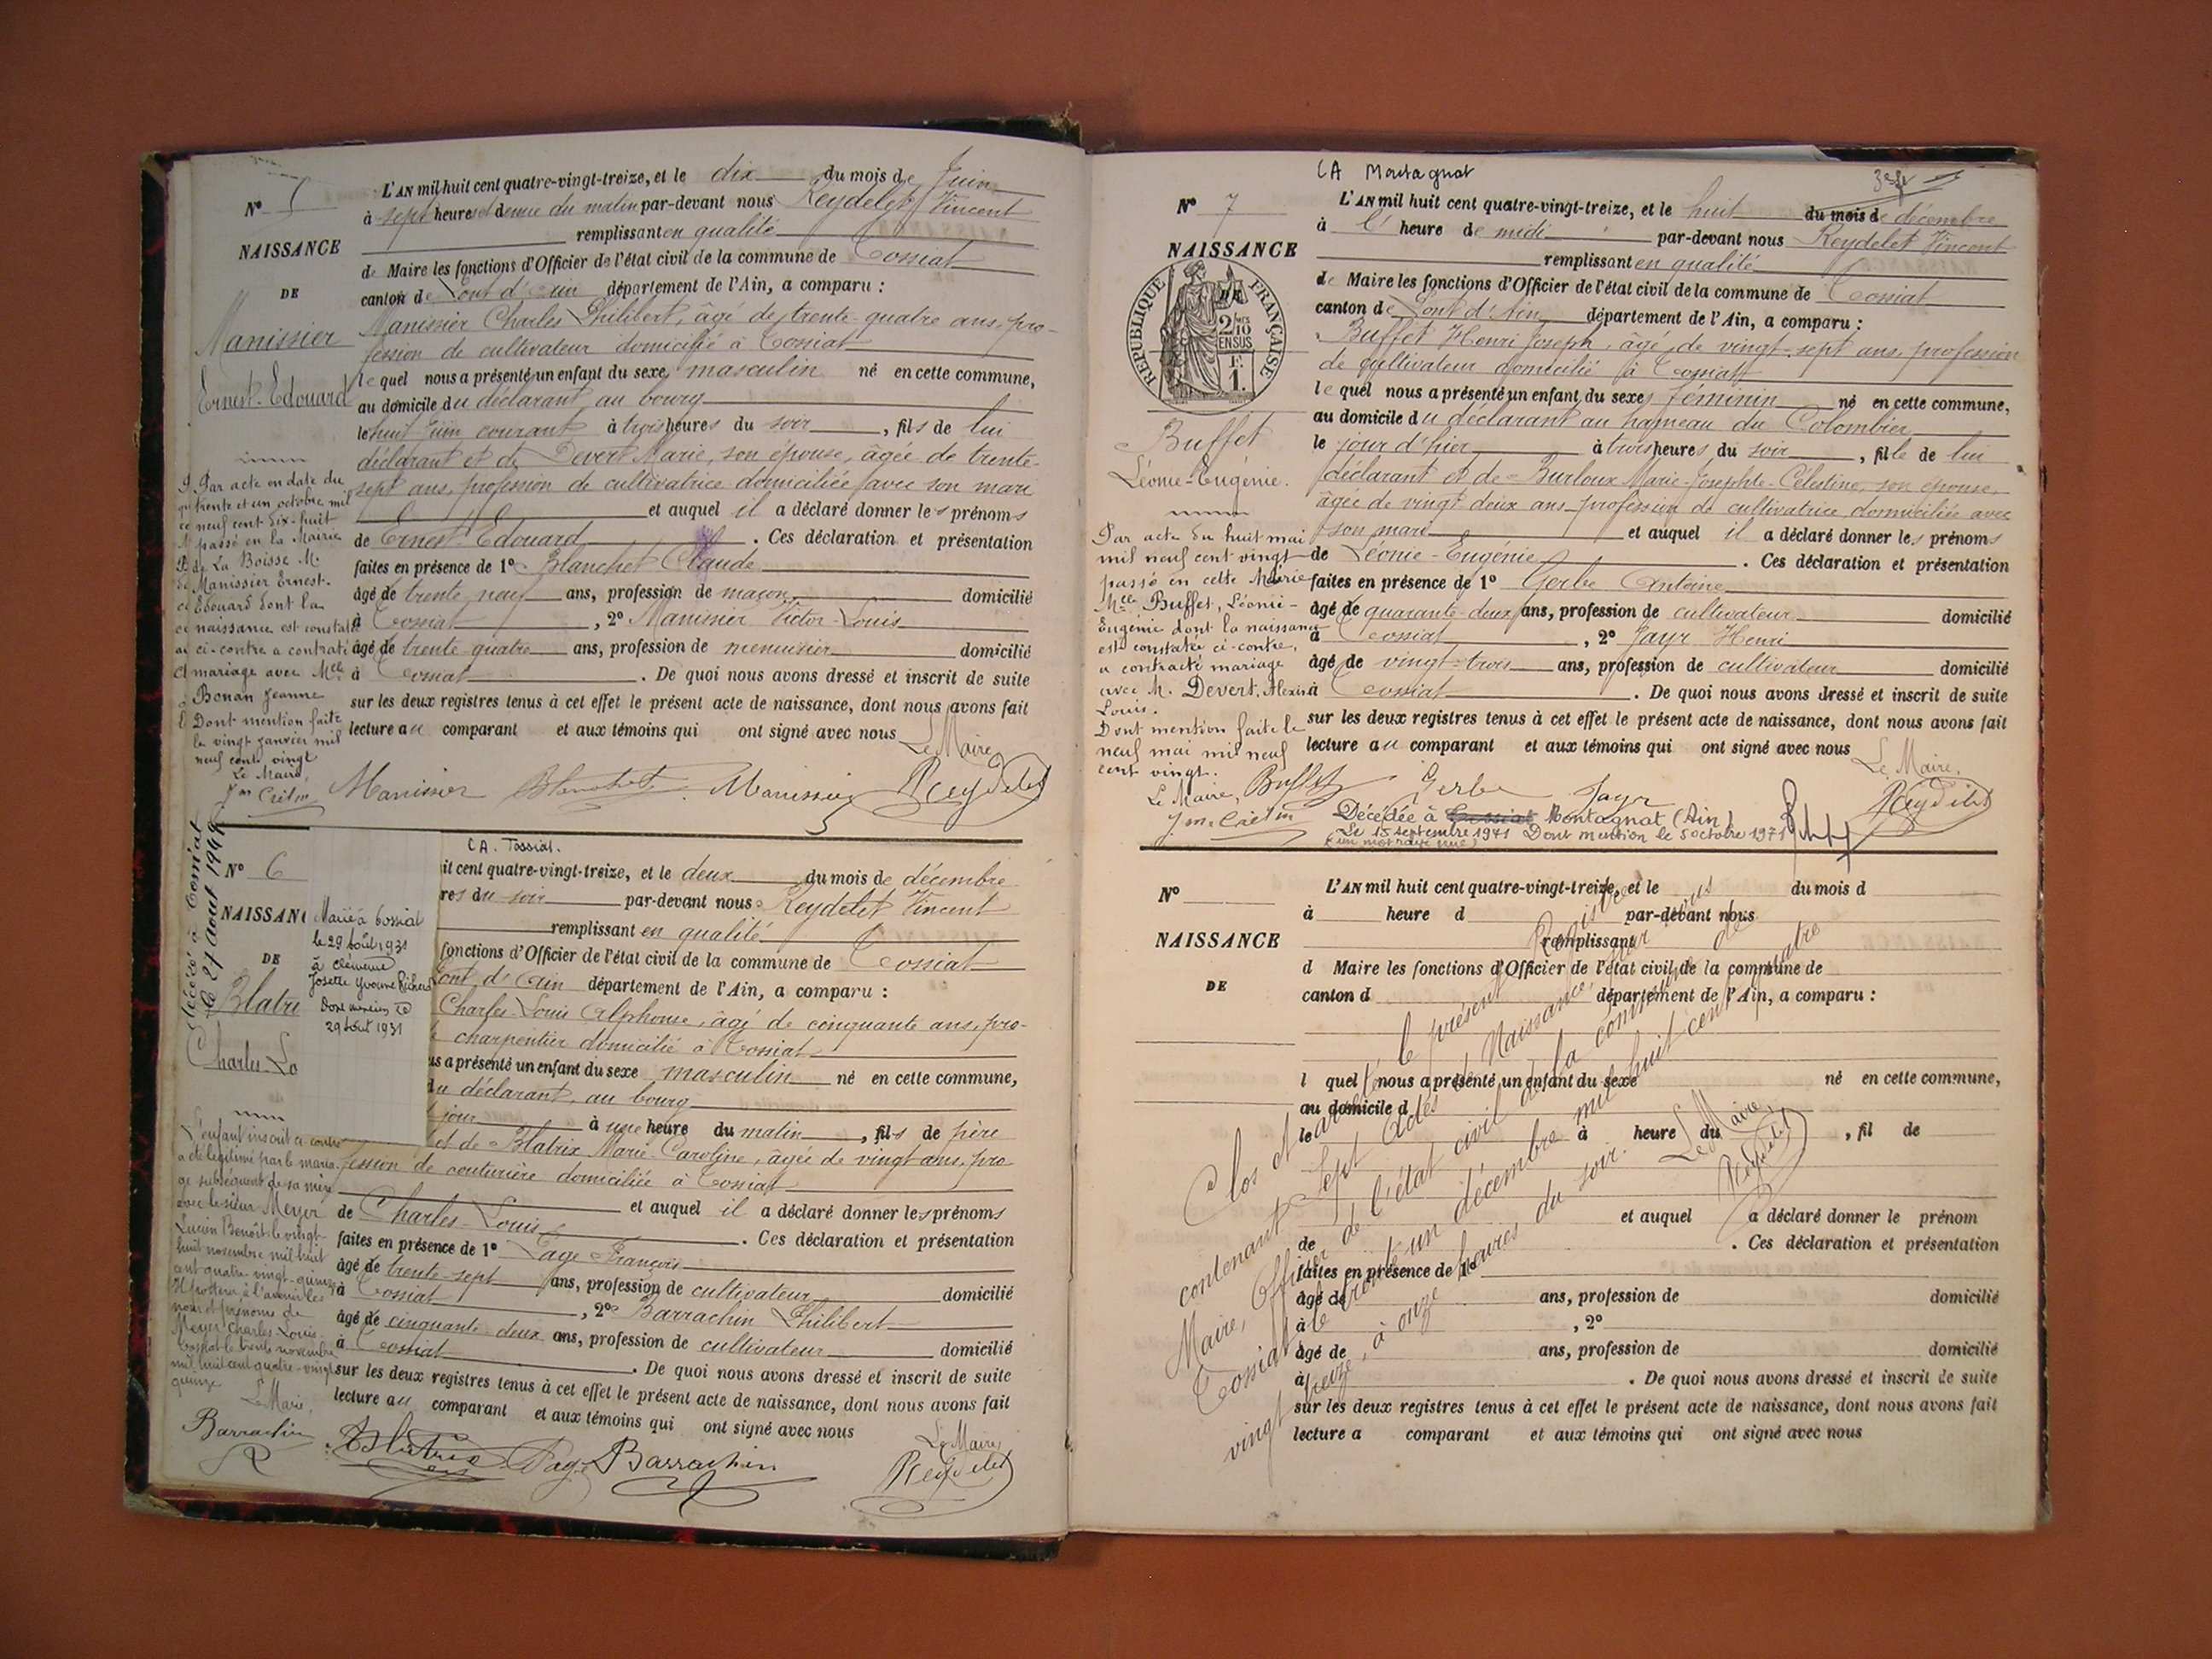 N° 5
NAISSANCE
DE
Manissier
Ernest-Edouard
L'AN mil huit cent quatre-vingt-treize, et le dix du mois de Juin
à sept heures et demie du matin par-devant nous Reydelet Vincent
remplissant en qualité
de Maire les fonctions d'Officier de l'état civil de la commune de Tossiat
canton de Pont d'Ain département de l'Ain, a comparu :
Manissier Charles Philibert, âgé de trente-quatre ans, pro-
fession de cultivateur domicilié à Tossiat
lequel nous a présenté un enfant du sexe masculin né en cette commune,
au domicile du déclarant, au bourg
le huit Juin courant à trois heures du soir, fils de lui
déclarant et de Devert Marie, son épouse, âgée de trente-
sept ans, profession de cultivatrice domiciliée avec son mari
et auquel il a déclaré donner les prénoms
de Ernest-Edouard. Ces déclaration et présentation
faites en présence de 1° Blanchet Claude
âgé de trente neuf ans, profession de maçon domicilié
à Tossiat, 2° Manissier Victor-Louis
âgé de trente quatre ans, profession de menuisier domicilié
à Tossiat. De quoi nous avons dressé et inscrit de suite
sur les deux registres tenus à cet effet le présent acte de naissance, dont nous avons fait
lecture au comparant et aux témoins qui ont signé avec nous
Le Maire
Manissier Blanchet Manissier Reydelet
Par acte en date du
trente et un octobre mil
neuf cent dix-huit
passé en la Mairie
de La Boisse M.
Manissier Ernest-
Edouard dont la
naissance est constatée
ci-contre a contracté
mariage avec Mlle
Bonan Jeanne
Dont mention faite
le vingt janvier mil
neuf cent vingt
Le Maire,
CA. Tossiat.
N° 6
NAISSAN
DE
Blatri
Charles-Lo
Décédé à Tossiat
Marié à Tossiat
le 29 août 1931
à Clémence
Josette Yvonne
Dont mention le
29 août 1931
it cent quatre-vingt-treize, et le deux du mois de décembre
res du soir par-devant nous Reydelet Vincent
remplissant en qualité
fonctions d'Officier de l'état civil de la commune de Tossiat
Pont d'Ain département de l'Ain, a comparu :
Charles-Louis Alphonse, âgé de cinquante ans, pro-
charpentier domicilié à Tossiat
us a présenté un enfant du sexe masculin né en cette commune,
du déclarant, au bourg
jour à une heure du matin, fils de père
et de Blatrix Marie-Caroline, âgée de vingt ans, pro
fession de couturière domiciliée à Tossiat
et auquel il a déclaré donner les prénoms
de Charles-Louis. Ces déclaration et présentation
faites en présence de 1° Page François
âgé de trente-sept ans, profession de cultivateur domicilié
à Tossiat, 2° Barrachin Philibert
âgé de cinquante deux ans, profession de cultivateur domicilié
à Tossiat. De quoi nous avons dressé et inscrit de suite
sur les deux registres tenus à cet effet le présent acte de naissance, dont nous avons fait
lecture au comparant et aux témoins qui ont signé avec nous
Le Maire,
Page Barrachin Reydelet
L'enfant inscrit ci-contre
a été légitimé par le maria-
ge subséquent de sa mère
avec le sieur Meyer
Lucien Benoît le vingt-
huit novembre mil huit
cent quatre-vingt-quinze
Il portera à l'avenir les
nom et prénoms de
Meyer Charles-Louis
Tossiat le trente novembre
mil huit cent quatre-vingt
quinze
Le Maire,
Barrachin
R
CA Montagnat
N° 7
NAISSANCE
DE
RÉPUBLIQUE FRANÇAISE
2/10 EN SUS
F. 1.
Buffet
Léonie-Eugénie.
L'AN mil huit cent quatre-vingt-treize, et le huit du mois de décembre
à l' heure de midi par-devant nous Reydelet Vincent
remplissant en qualité
de Maire les fonctions d'Officier de l'état civil de la commune de Tossiat
canton de Pont d'Ain département de l'Ain, a comparu :
Buffet Henri Joseph, âgé de vingt-sept ans, profession
de cultivateur domicilié à Tossiat
lequel nous a présenté un enfant du sexe féminin né en cette commune,
au domicile du déclarant au hameau du Colombier
le jour d'hier à trois heures du soir, fille de lui
déclarant et de Burloux Marie-Josephte-Célestine, son épouse,
âgée de vingt-deux ans profession de cultivatrice domiciliée avec
son mari et auquel il a déclaré donner les prénoms
de Léonie-Eugénie. Ces déclaration et présentation
faites en présence de 1° Gerbe Antoine
âgé de quarante-deux ans, profession de cultivateur domicilié
à Tossiat, 2° Jayr Henri
âgé de vingt-trois ans, profession de cultivateur domicilié
à Tossiat. De quoi nous avons dressé et inscrit de suite
sur les deux registres tenus à cet effet le présent acte de naissance, dont nous avons fait
lecture au comparant et aux témoins qui ont signé avec nous
Le Maire,
Buffet Gerbe Jayr Reydelet
Par acte du huit mai
mil neuf cent vingt
passé en cette Mairie
Mlle Buffet, Léonie-
Eugénie dont la naissance
est constatée ci-contre,
a contracté mariage
avec M. Devert Alexis
Louis.
Dont mention faite le
neuf mai mil neuf
cent vingt.
Le Maire,
Décédée à Tossiat Montagnat (Ain)
Le 15 septembre 1971 Dont mention le 5 octobre 1971
(un mot rayé nul)
N°
NAISSANCE
DE
L'AN mil huit cent quatre-vingt-treize, et le du mois d
à heure d par-devant nous
remplissant
d Maire les fonctions d'Officier de l'état civil de la commune de
canton d département de l'Ain, a comparu :
l quel nous a présenté un enfant du sexe né en cette commune,
au domicile d
le à heure du , fil de
et auquel a déclaré donner le prénom
de . Ces déclaration et présentation
faites en présence de 1°
âgé de ans, profession de domicilié
à , 2°
âgé de ans, profession de domicilié
à . De quoi nous avons dressé et inscrit de suite
sur les deux registres tenus à cet effet le présent acte de naissance, dont nous avons fait
lecture a comparant et aux témoins qui ont signé avec nous
Clos et arrêté le présent Registre
contenant Sept Actes de Naissance, par nous
Maire, Officier de l'état civil de la commune de
Tossiat le trente-un décembre mil huit cent quatre
vingt treize, à onze heures du soir.
Le Maire,
Reydelet